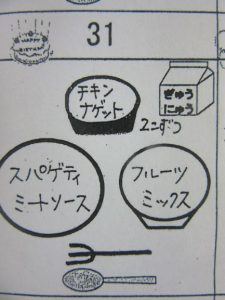 HAPPY
BIRTHDAY
31
チキン
ナゲット
ぎゅう
にゅう
2こずつ
スパゲティ
ミートソース
フルーツ
ミックス